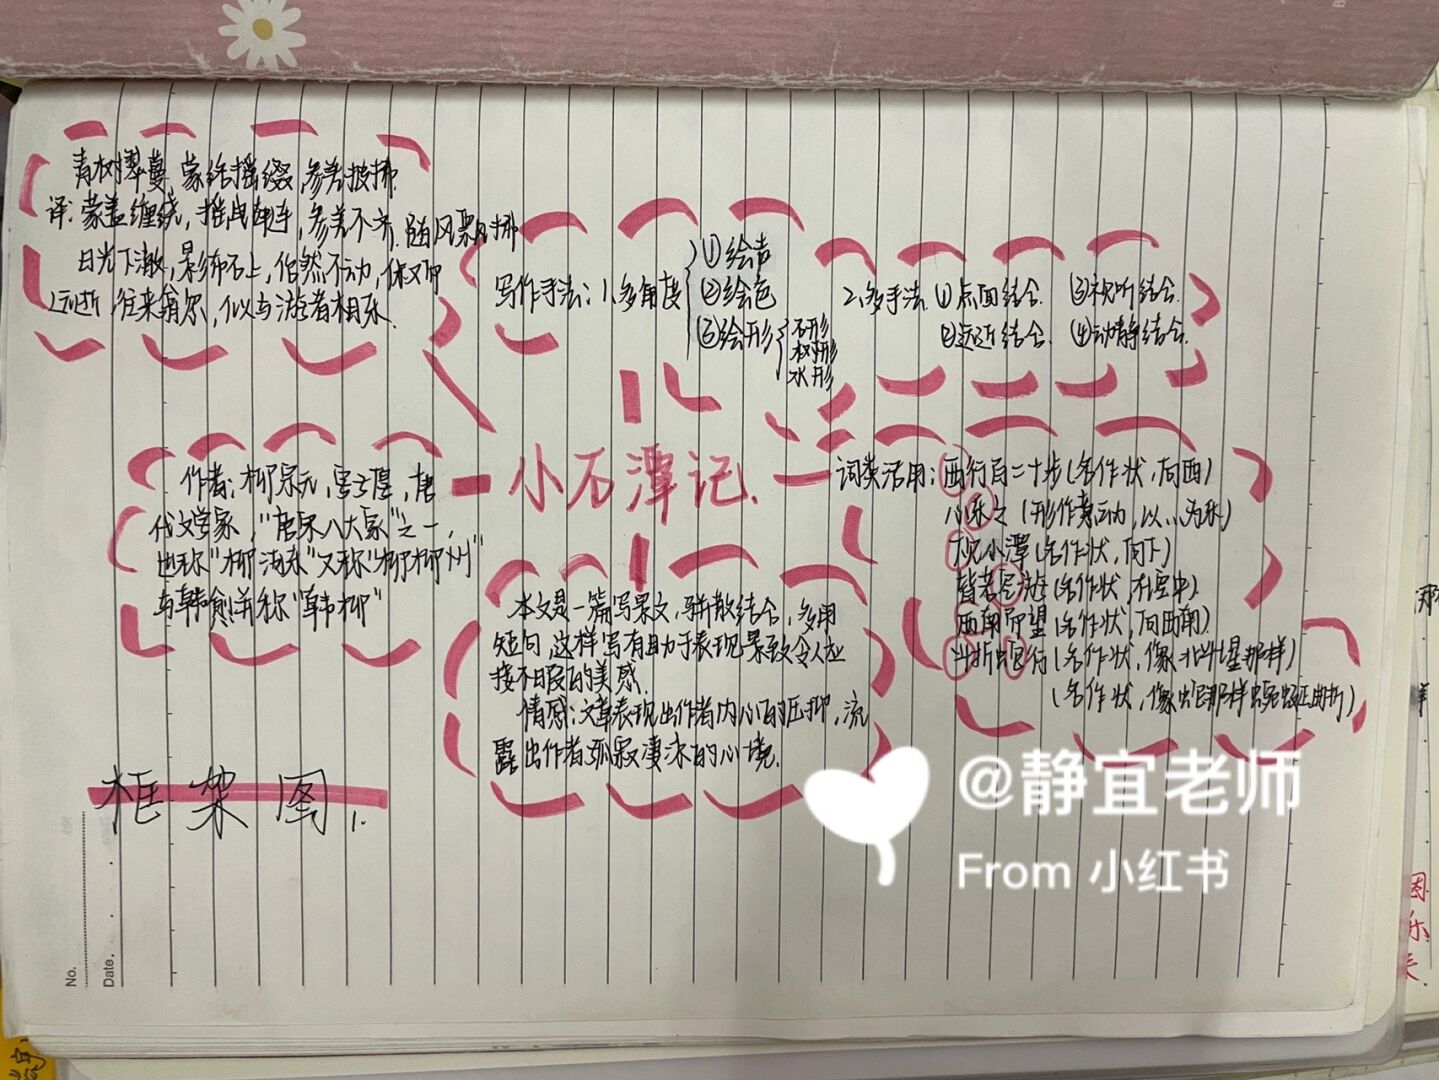 青树翠蔓,蒙络摇缀,参差披拂.
译:蒙盖缠绕,摇曳牵连,参差不齐.随风飘拂
日光下澈,影布石上,佁然不动,俶又
远逝,往来翕尔,似与游者相乐.
写作手法:1.多角度
①绘声
②绘色
③绘形
石形
树形
水形
2.多手法 ①点面结合 ③视听结合
②远近结合 ④动静结合.
作者:柳宗元,字子厚,唐
代文学家,"唐宋八大家"之一,
也称"柳河东"又称"柳柳州"
与韩愈并称"韩柳"
小石潭记.
词类活用:西行百二十步(名作状,向西)
心乐之(形作意动,以…为乐)
下见小潭(名作状,向下)
皆若空游(名作状,在空中)
西南而望(名作状,向西南)
斗折蛇行(名作状,像北斗星那样)
(名作状,像蛇那样蜿蜒曲折)
本文是一篇写景文,骈散结合,多用
短句,这样写有助于表现景致令人应
接不暇的美感.
情感:文章表现出作者内心的压抑,流
露出作者孤寂凄凉的心境.
框架图1.
No.
Date.
@静宜老师
From 小红书
因
乐